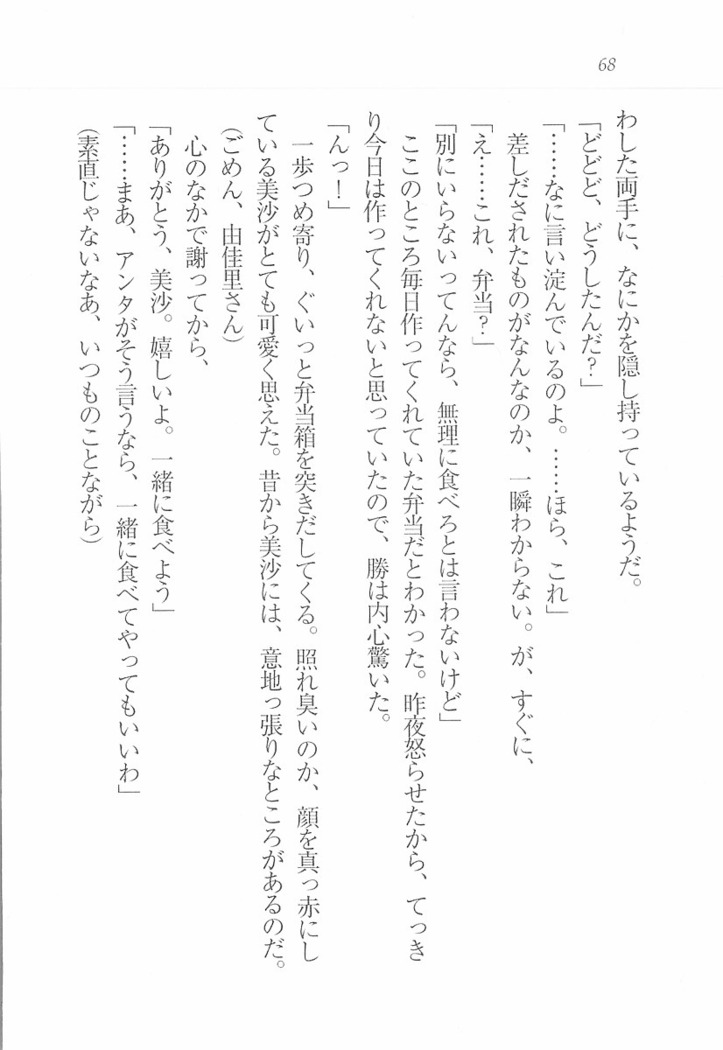 68
わした両手に、なにかを隠し持っているようだ。
「どどど、どうしたんだ？」
「……なに言い淀んでいるのよ。……ほら、これ」
差しだされたものがなんなのか、一瞬わからない。が、すぐに、
「え……これ、弁当？」
「別にいらないってんなら、無理に食べろとは言わないけど」
ここのところ毎日作ってくれていた弁当だとわかった。昨夜怒らせたから、てっき
り今日は作ってくれないと思っていたので、勝は内心驚いた。
「んっ！」
一歩つめ寄り、ぐいっと弁当箱を突きだしてくる。照れ臭いのか、顔を真っ赤にし
ている美沙がとても可愛く思えた。昔から美沙には、意地っ張りなところがあるのだ。
（ごめん、由佳里さん）
心のなかで謝ってから、
「ありがとう、美沙。嬉しいよ。一緒に食べよう」
「……まあ、アンタがそう言うなら、一緒に食べてやってもいいわ」
（素直じゃないなあ、いつものことながら）